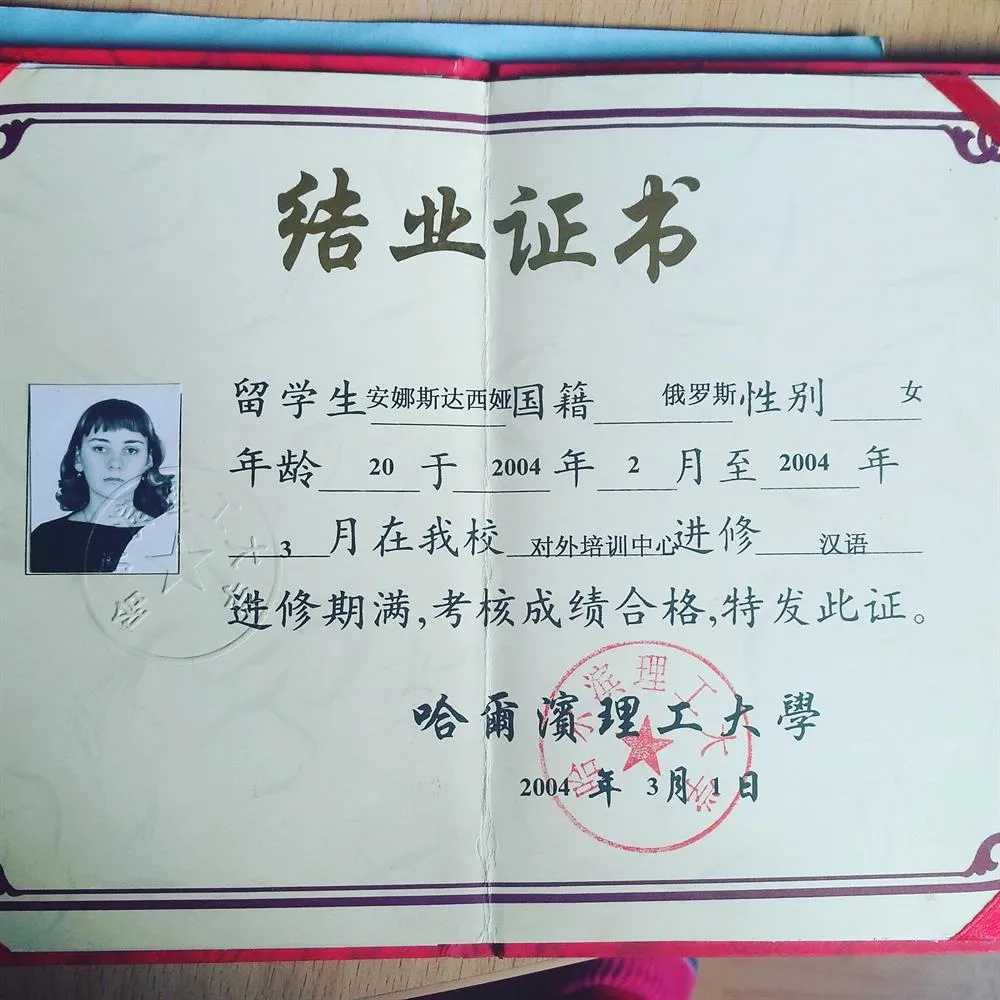 结业证书
留学生安娜斯达西娅国籍 俄罗斯 性别 女
年龄 20 于 2004 年 2 月至 2004 年
3 月在我校 对外培训中心 进修 汉语
进修期满,考核成绩合格,特发此证。
哈爾濱理工大學
2004 年 3 月 1 日
哈尔滨理工大学